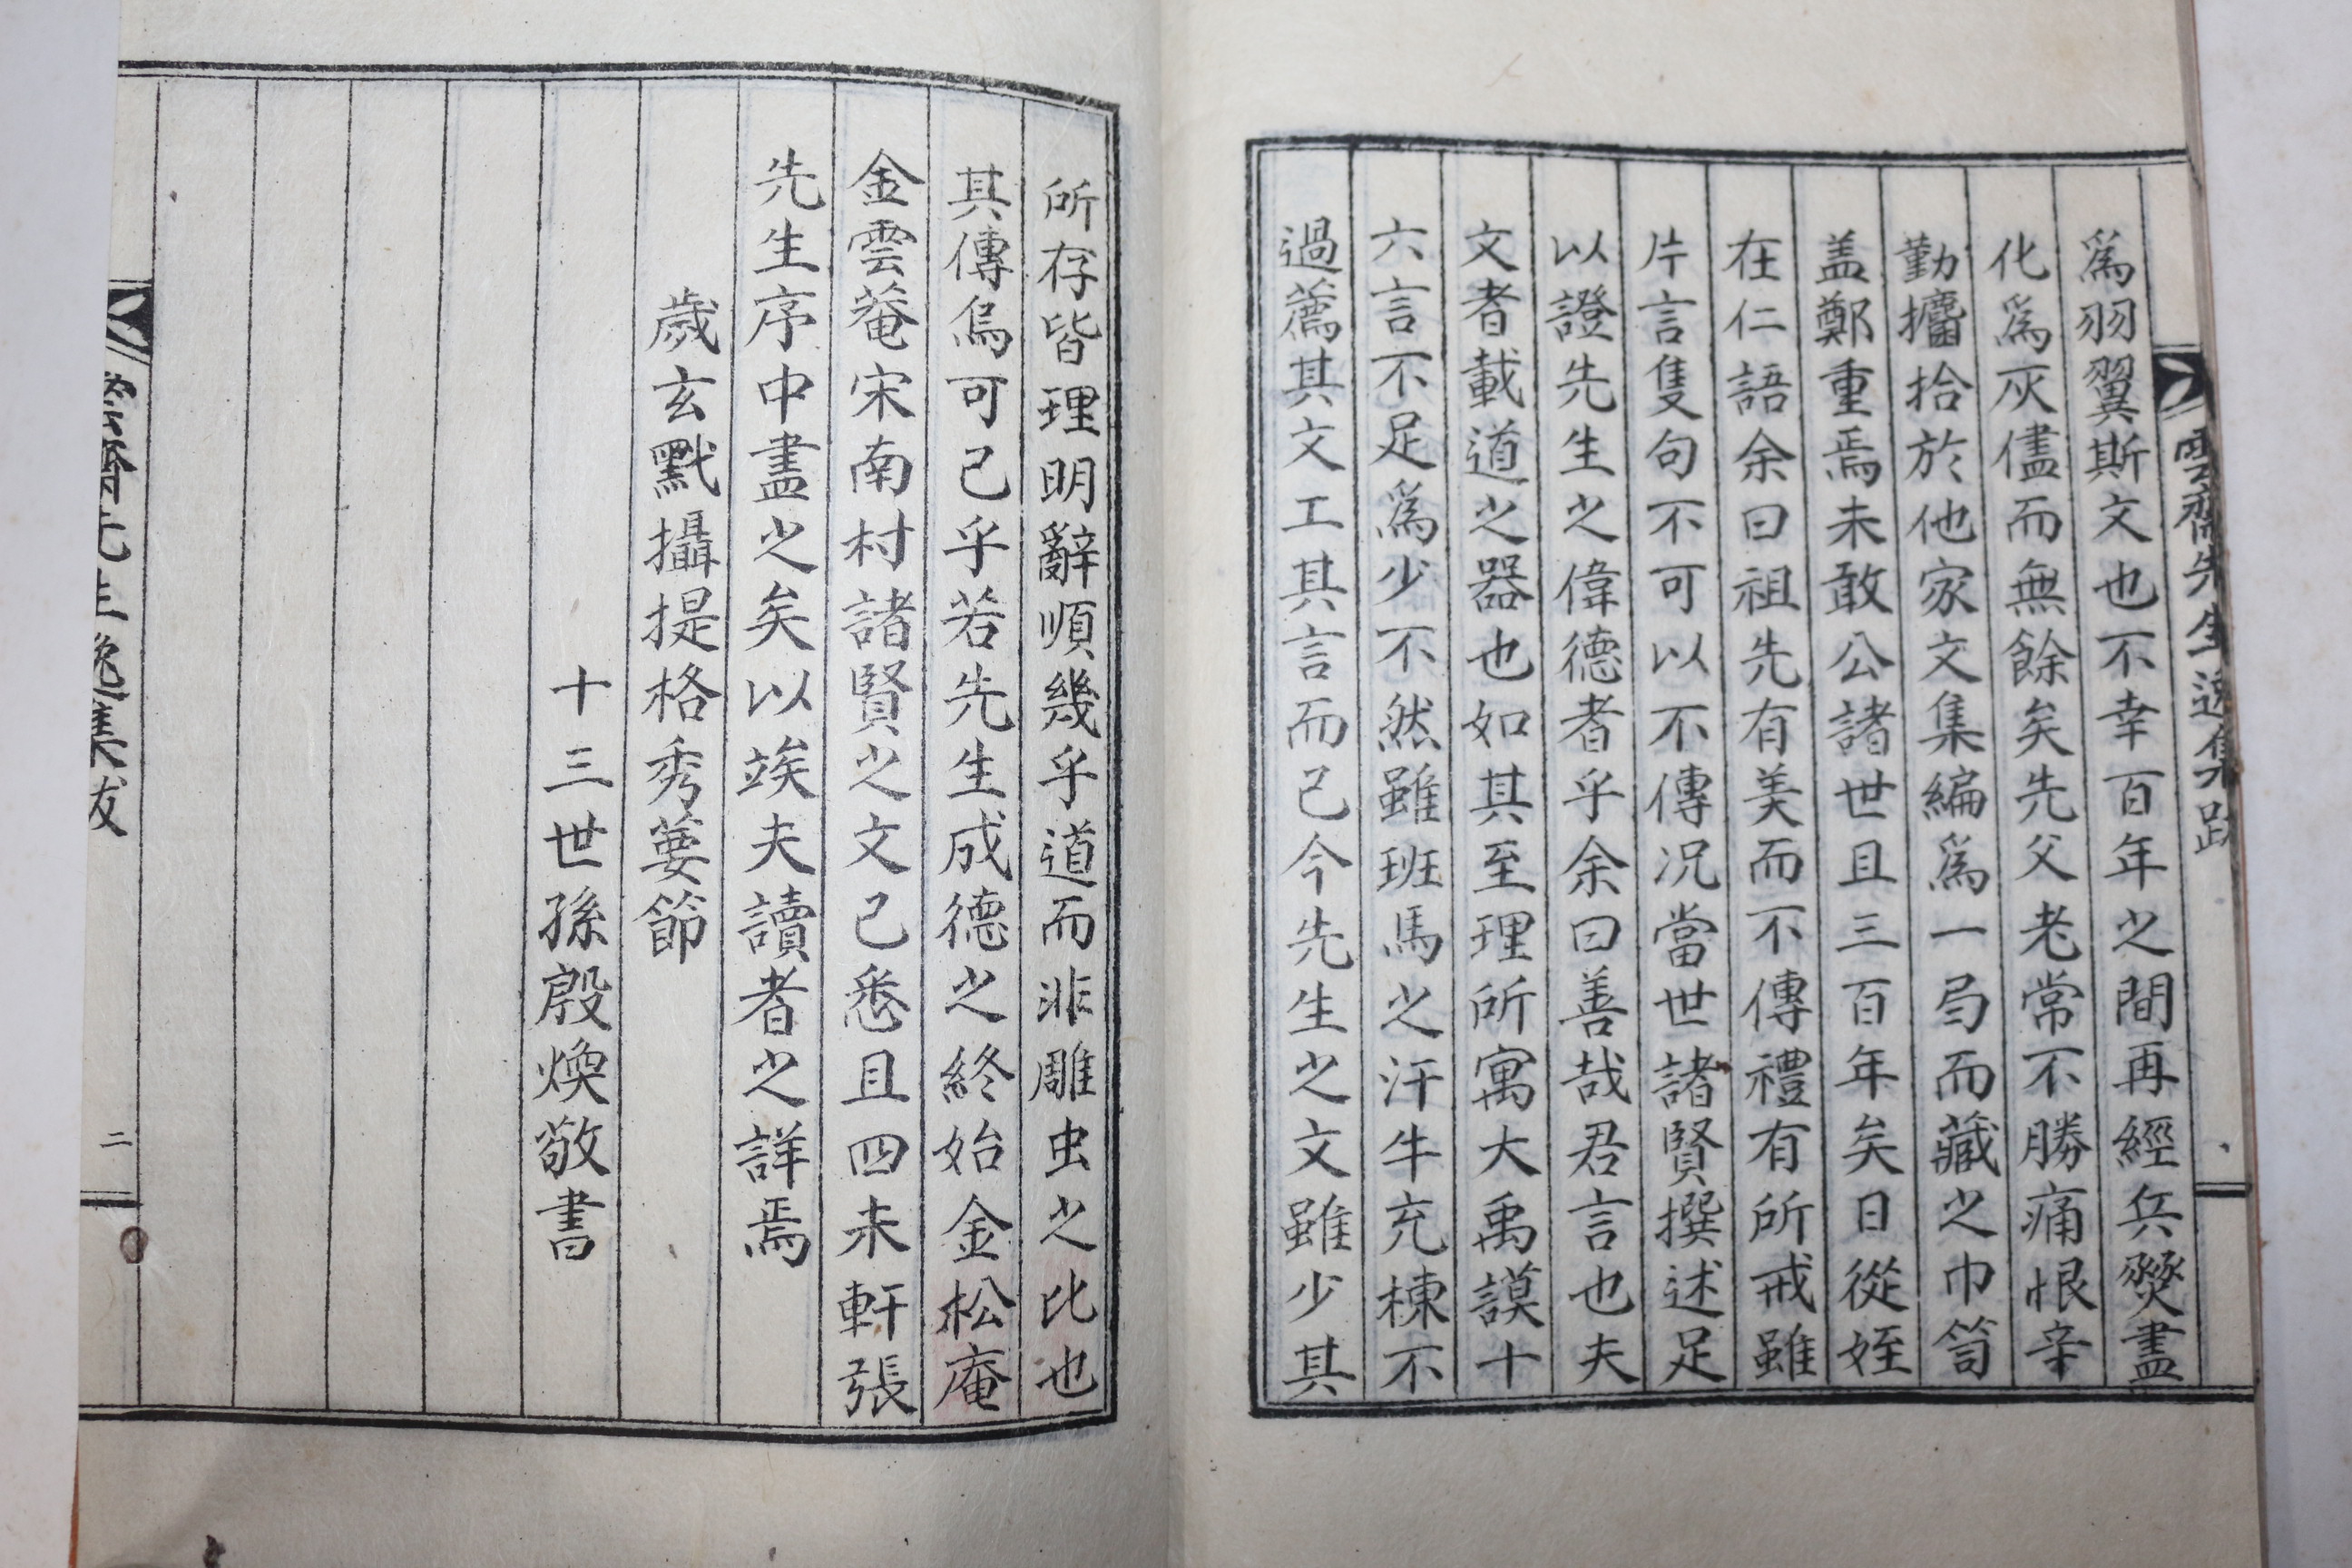 雲齋先生逸集跋
爲羽翼斯文也不幸百年之間再經兵燹盡
化爲灰儘而無餘矣先父老常不勝痛恨辛
勤攟拾於他家文集編爲一局而藏之巾笥
盖鄭重焉未敢公諸世且三百年矣日從姪
在仁語余曰祖先有美而不傳禮有所戒雖
片言隻句不可以不傳况當世諸賢撰述足
以證先生之偉德者乎余曰善哉君言也夫
文者載道之器也如其至理所寓大禹謨十
六言不足爲少不然雖班馬之汗牛充棟不
過薦其文工其言而已今先生之文雖少其
所存皆理明辭順幾乎道而非雕虫之比也
其傳烏可已乎若先生成德之終始金松庵
金雲菴宋南村諸賢之文已悉且四未軒張
先生序中盡之矣以竢夫讀者之詳焉
歲玄黓攝提格秀葽節
十三世孫殷煥敬書
齋先生逸集跋
二